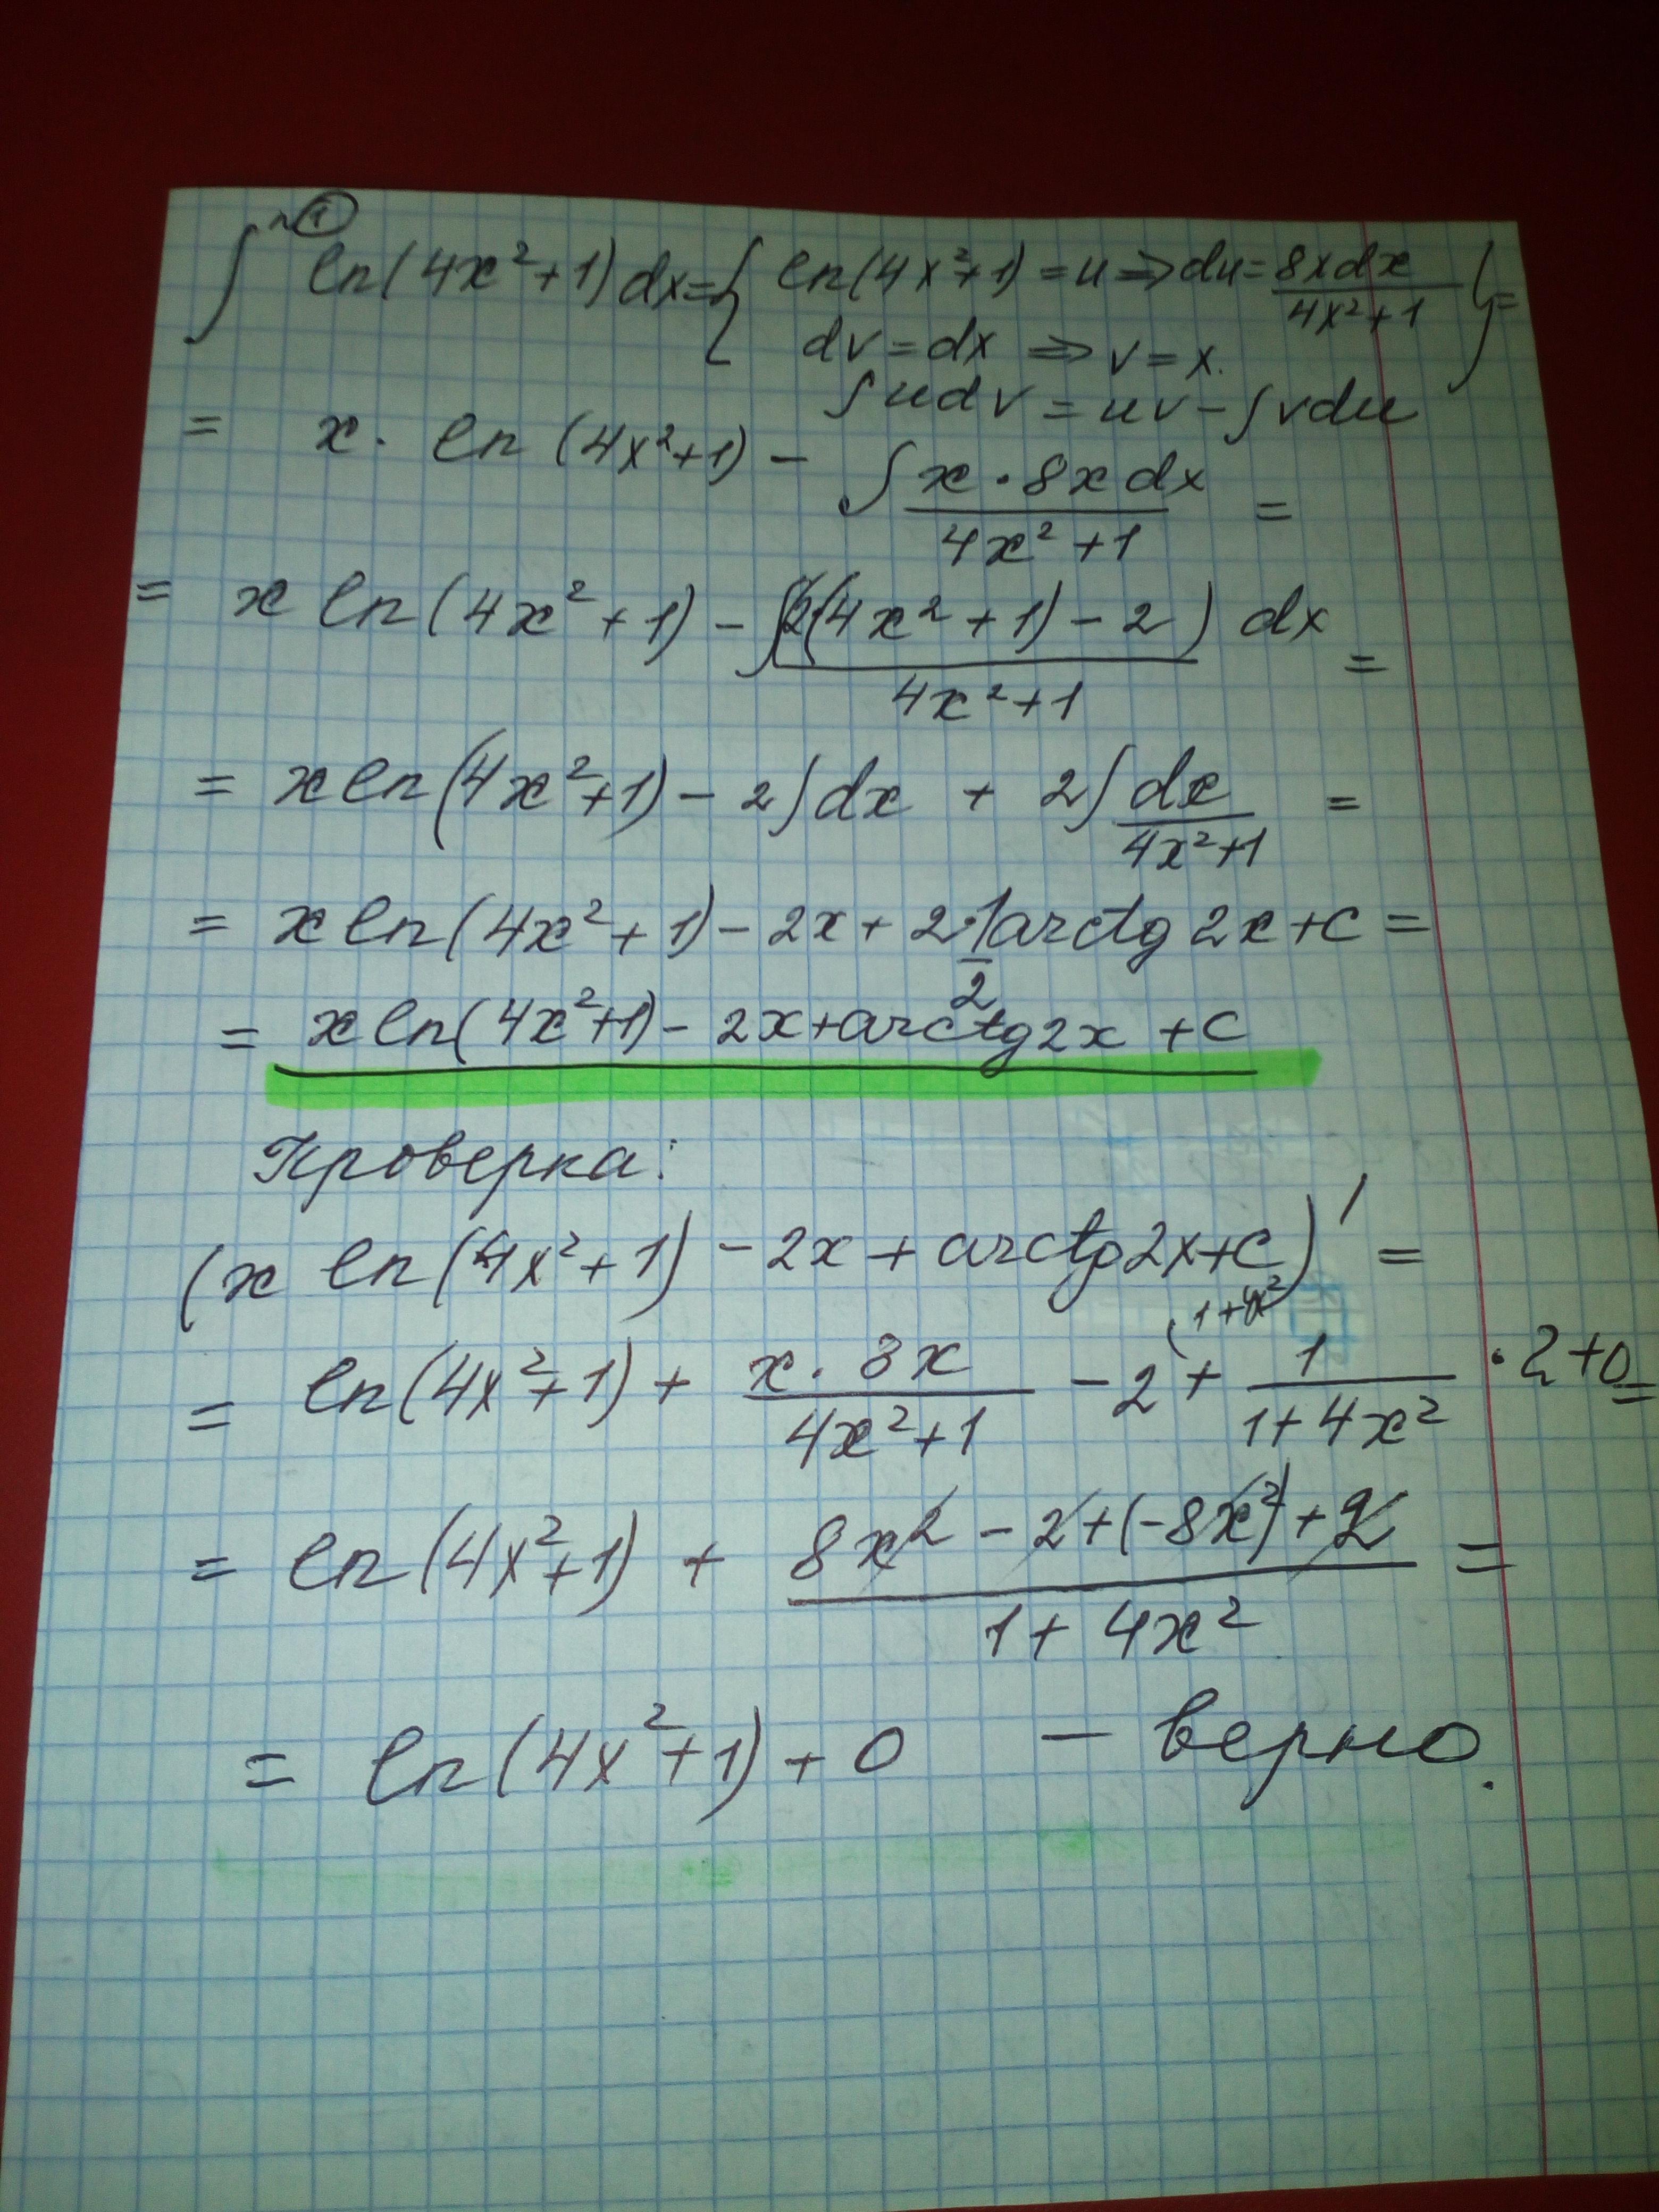 № 1
∫ ln(4x²+1)dx = { ln(4x²+1) = u ⇒ du = 8xdx/(4x²+1) } =
dv = dx ⇒ v = x.
∫udv = uv - ∫vdu
= x · ln(4x²+1) - ∫ x · 8x dx/(4x²+1) =
= x ln(4x²+1) - ∫ (2(4x²+1) - 2)/(4x²+1) dx =
= x ln(4x²+1) - 2∫dx + 2∫ dx/(4x²+1) =
= x ln(4x²+1) - 2x + 2·1/2 arctg 2x + c =
= x ln(4x²+1) - 2x + arctg 2x + c
Проверка:
(x ln(4x²+1) - 2x + arctg 2x + c)' =
(1+4x²
= ln(4x²+1) + x · 8x/(4x²+1) - 2 + 1/(1+4x²) · 2 + 0 =
= ln(4x²+1) + (8x² - 2 + (-8x²) + 2)/(1+4x²) =
= ln(4x²+1) + 0 - верно.